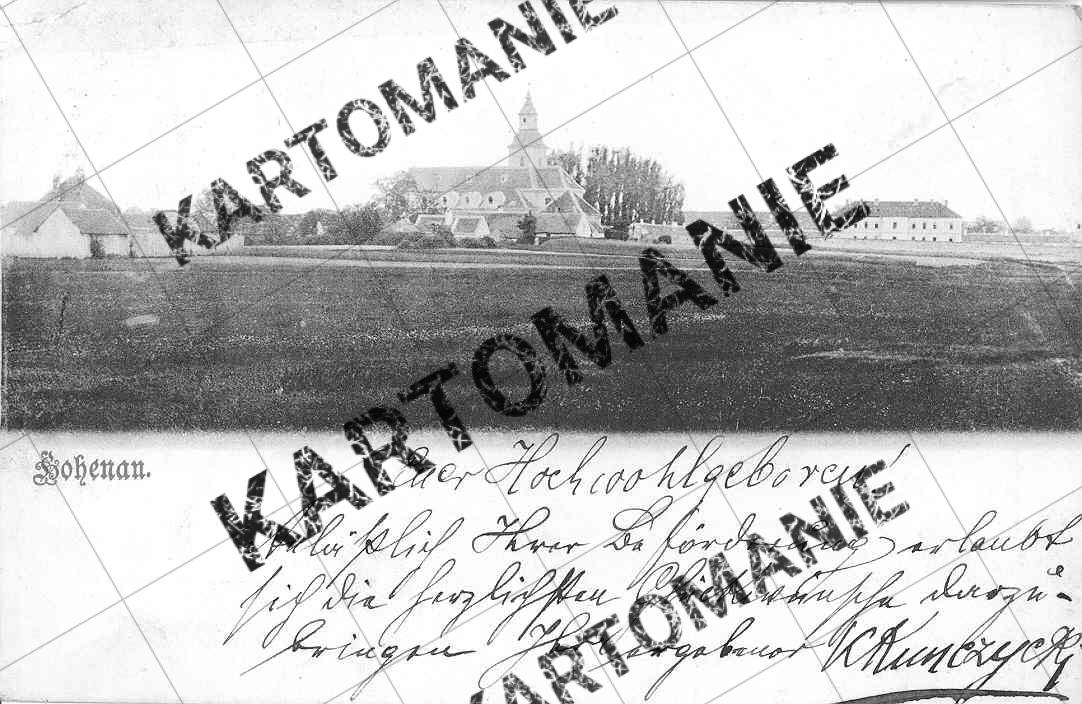 KARTOMANIE
KARTOMANIE
KARTOMANIE
Hohenau.
Euer Hochwohlgeboren!
Anläßlich Ihrer Beförderung erlaubt
sich die herzlichsten Glückwünsche darzu-
bringen Ihr ergebener